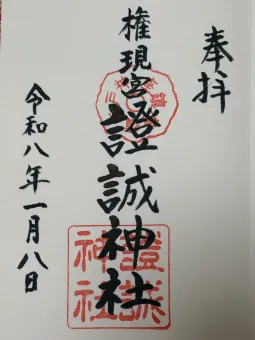 奉拝
権現宮證誠神社
令和八年一月八日
證誠
神社